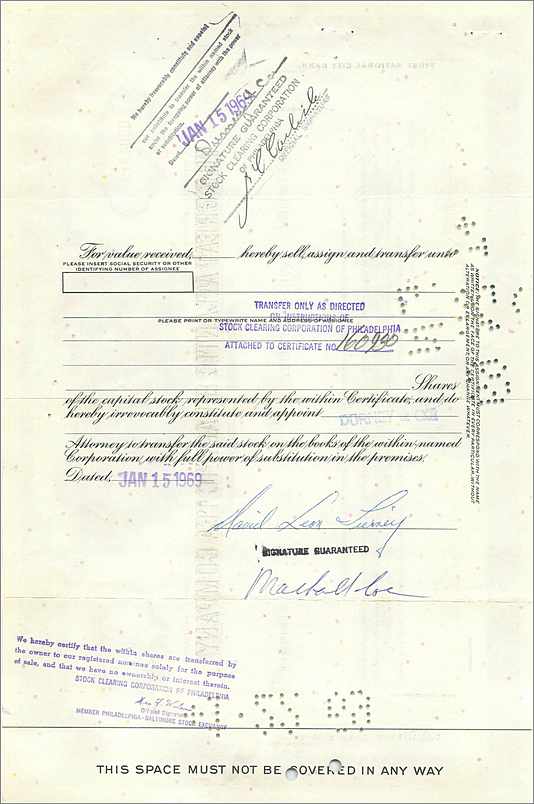 We hereby irrevocably constitute and appoint
our substitute to transfer the within named stock
under the foregoing power of attorney with the power
of substitution.
Dated
JAN 15 1969
SIGNATURE GUARANTEED
STOCK CLEARING CORPORATION
OF PHILADELPHIA
For value received, hereby sell, assign and transfer unto
PLEASE INSERT SOCIAL SECURITY OR OTHER
IDENTIFYING NUMBER OF ASSIGNEE
TRANSFER ONLY AS DIRECTED
ON INSTRUCTIONS OF
PLEASE PRINT OR TYPEWRITE NAME AND ADDRESS OF ASSIGNEE
STOCK CLEARING CORPORATION OF PHILADELPHIA
ATTACHED TO CERTIFICATE NO.
Shares
of the capital stock represented by the within Certificate, and do
hereby irrevocably constitute and appoint
Attorney to transfer the said stock on the books of the within named
Corporation with full power of substitution in the premises.
Dated, JAN 15 1969
David Leon Turney
SIGNATURE GUARANTEED
NOTICE: THE SIGNATURE TO THIS ASSIGNMENT MUST CORRESPOND WITH THE NAME
AS WRITTEN UPON THE FACE OF THE CERTIFICATE IN EVERY PARTICULAR, WITHOUT
ALTERATION OR ENLARGEMENT OR ANY CHANGE WHATEVER.
We hereby certify that the within shares are transferred by
the owner to our registered nominee solely for the purpose
of sale, and that we have no ownership or interest therein.
STOCK CLEARING CORPORATION OF PHILADELPHIA
MEMBER PHILADELPHIA-BALTIMORE STOCK EXCHANGE
THIS SPACE MUST NOT BE COVERED IN ANY WAY